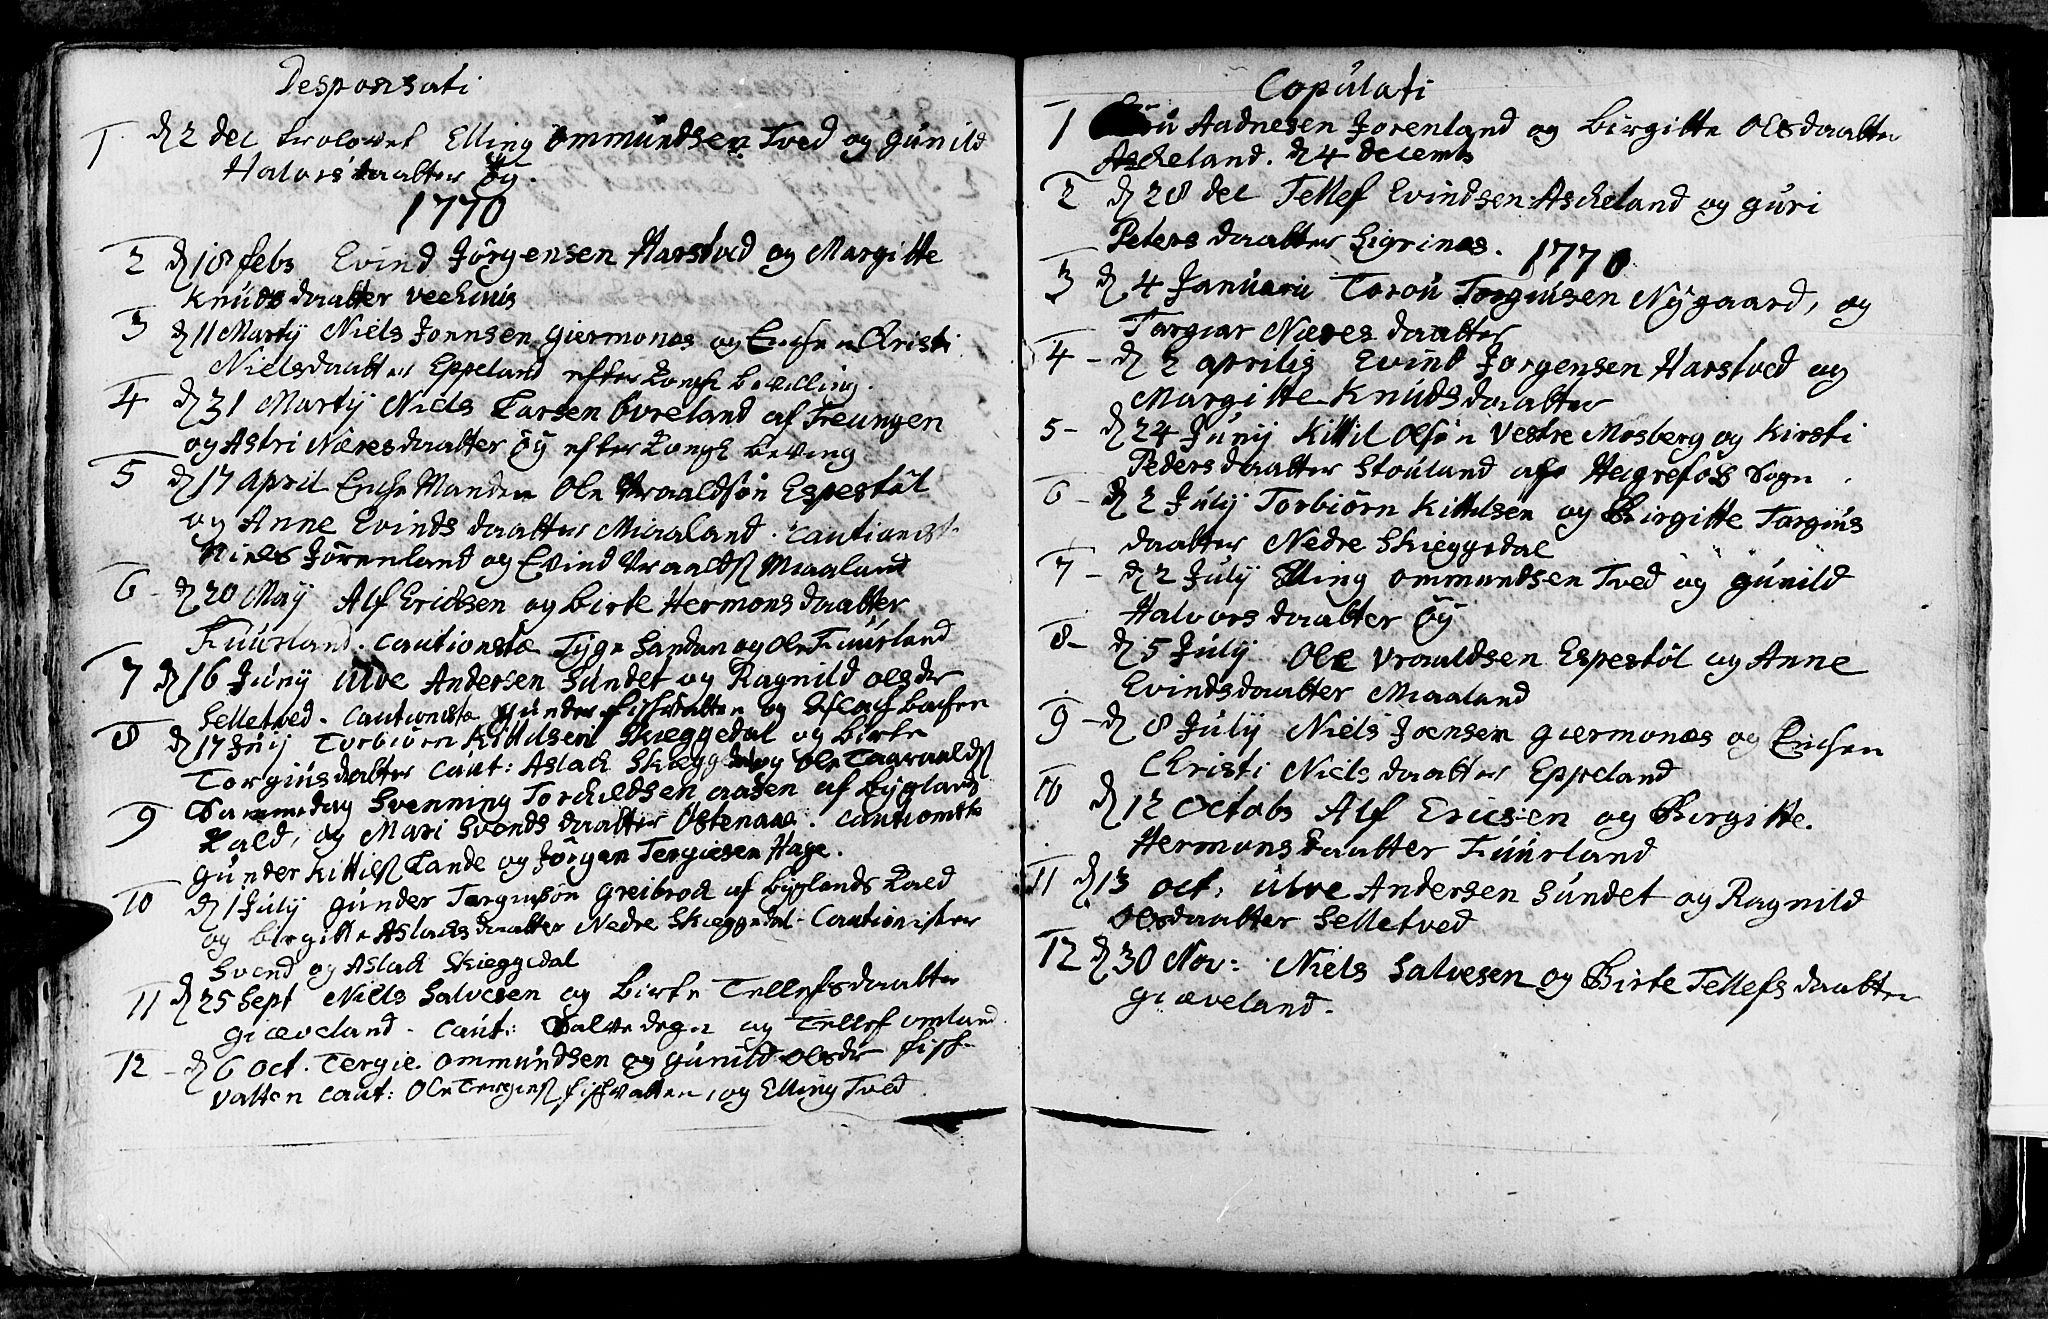 Desponsati
1 d 2 dec trolovet Elling Ommundsen Tved og Gunild
Halvorsdaatter Øy.
1770
2 d 18 febr Evind Jörgensen Harstved og Margitte
Knudsdaatter
3 d 11 Martij Niels Jonnsen Giermones og Enchen Christi
Nielsdaatter Eppeland efter Kongl bevilling.
4 d 31 Martij Niels Larsen Ovreland af Treungen
og Astri Næresdaatter öy efter Kongl beving
5 d 17 April Enche Manden Ole Vraaldsön Espestöl
og Anne Evindsdaatter Miaaland. Cautionist
Niels Jörenland og Evind Vraalds Miaaland
6 - d 20 Maij Alf Ericksen og Birte Hermonsdaatter
Fuurland. Cautionistæ Tyge Sandnn og Ole Fuurland
7 d 16 Junij Ulve Andersen Sundet og Ragnild olsdr
Selletved. Cautionistæ Gunder fischvatten og
8 d 17 Junij Torbiörn Kittilsen Skieggedal og Birte
Torgiusdatter Caut: Aslach Skieggedal og Ole Taaraalds
9 Sammedag Svenning Torchildsen aasen af Byglands
Kald, og Mari Svendsdaatter Östenaae. Cautionistæ
Gunder Kittils Lande og Jörgen Tergiesen Hage.
10 d 1 Julij Gunder Targiusön Greibrock af Byglands Kald
og Birgitte Aslachsdaatter Nedre Skieggedal - Cautionister
Svend og Aslach Skieggedal
11 d 25 Sept Niels Salvesen og Birte Tellefsdaatter
Giæveland - Caut: Salve degn og Tellef omland.
12 - d 6 oct. Tergie ommundsen og Gunild olsdr fisch-
vatten Caut: Ole Tergies fischvatten, og Elling Tved
Copulati
1 Aadnesen Jorenland og Birgitte Olsdaatter
Ascheland. d 4 decemb
2 d 28 dec Tellef Evindsen Ascheland og Guri
Petersdaatter Sigrinas.
1770
3 d 4 Januarii Torou Torgiusen Nygaard, og
Targiær Næresdaatter
4 - d 2 aprilis Evind Jorgensen Harstved og
Margitte Knudsdaatter
5 - d 24 Junij Kittil Olsön Vestre Mosberg og Kirsti
Pedersdaatter Stouland af Hægrefos Sogn
6 - d 2 Julij Torbiörn Kittilsen og Birgitte Targius
daatter Nedre Skieggedal
7 - d 2 Julij Elling ommundsen Tved og Gunild
Halvorsdaatter öy
8 - d 5 Julij Ole Vraaldsen Espestöl og Anne
Evindsdaatter Miaaland
9 - d 8 Julij Niels Joensen Giermones og Enchen
Christi Nielsdaatter Eppeland
10 d 12 Octobr Alf Ericsen og Birgitte
Hermonsdaatter Fuurland
11 d 13 oct: Ulve Andersen Sundet og Ragnild
Olsdaatter Selletved
12 d 30 Nov: Niels Salvesen og Birte Tellefsdaatter
Giæveland.